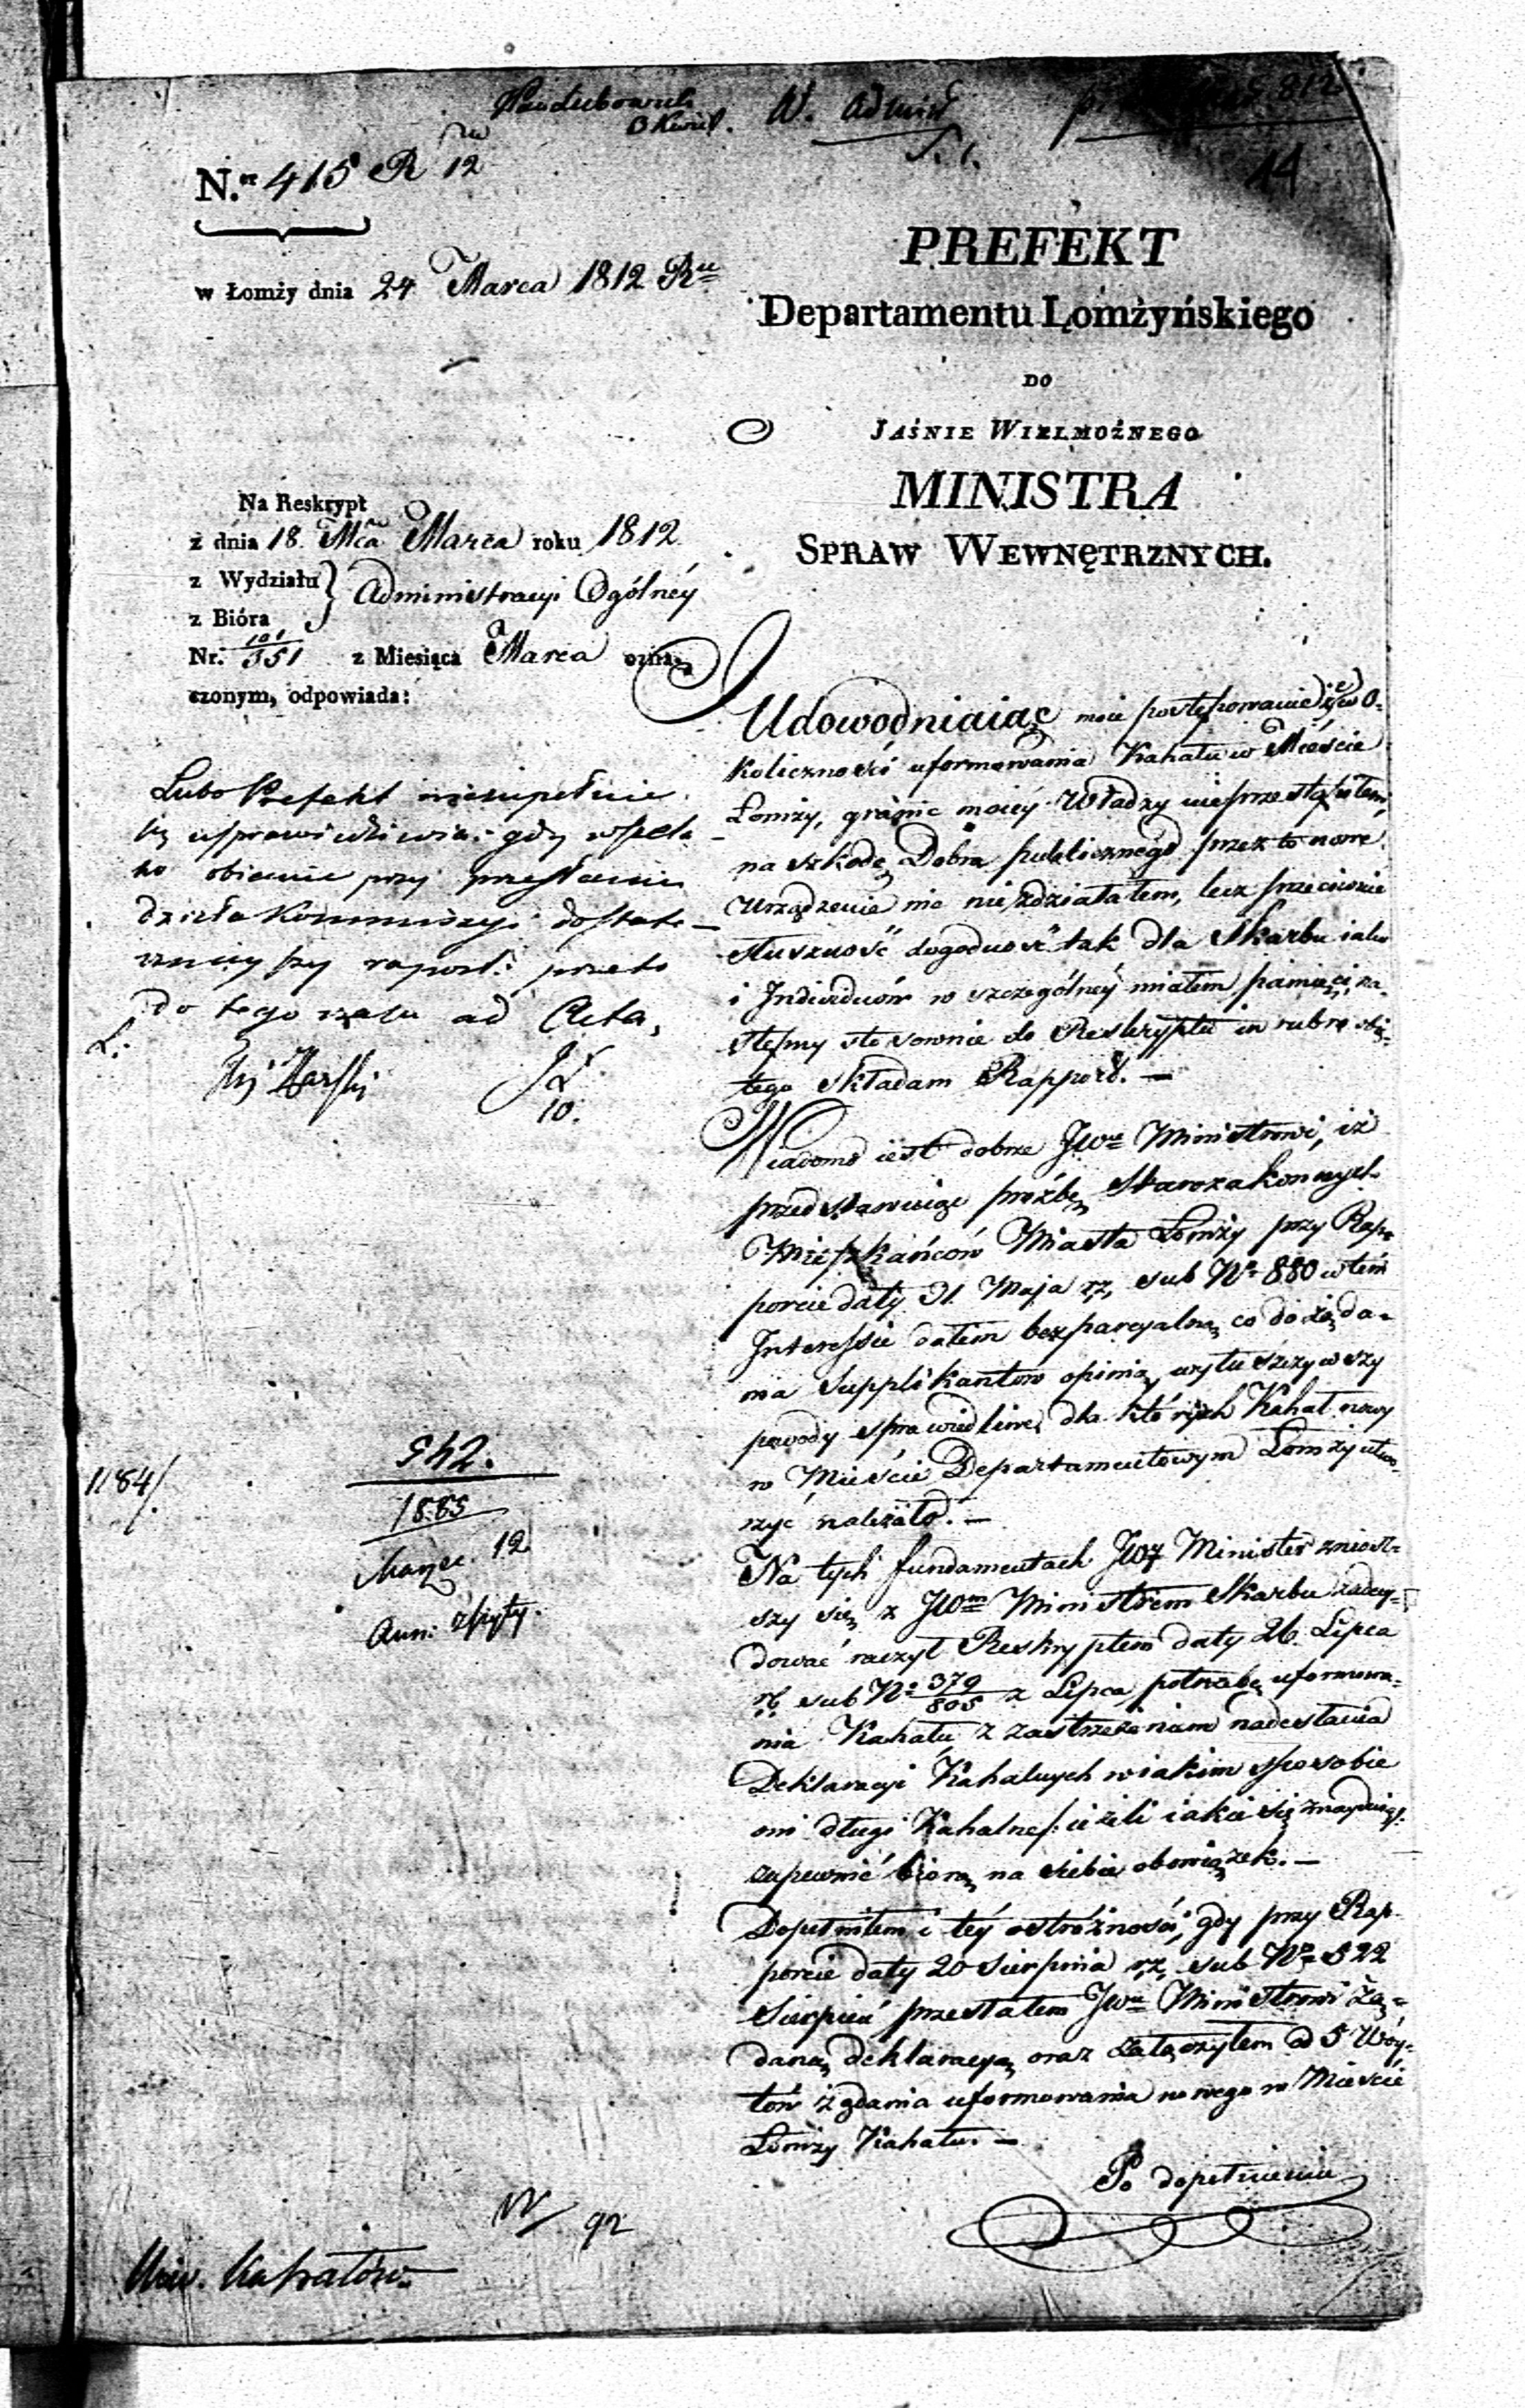 W. Admin
14
N.er 415 R 12
w Łomży dnia 24 Marca 1812 Ru
PREFEKT
Departamentu Łomżyńskiego
DO
JAŚNIE WIELMOŻNEGO
MINISTRA
SPRAW WEWNĘTRZNYCH.
Na Reskrypt
z dnia 18. Mca Marca roku 1812
z Wydziału } Administracyi Ogólney
z Bióra
Nr. 101/351 z Miesiąca Marca ozna-
czonym, odpowiada:
Lubo Prefekt niezupełnie
się usprawiedliwia: gdy wszela-
ko obiecuie przy przesłaniu
dzieła Kommissyi dostate-
cznieyszy raport: przeto
do tego czasu ad Acta,
L:
10.
1184/.
542.
1885
Marzec. 12
W/92
Kahałów.
Udowodniaiąc moie postępowanie że w O-
koliczności uformowania Kahału w Mieście
Łomży, granic moiéy Władzy nieprzestąpiłem,
na szkodę Dobra publicznego przez to nowe
urządzenie nic nie zdziałałem, lecz przeciwnie
słuszność dogodność tak dla Skarbu iako
i Individuów w szczególnéy miałem pamięci, na-
stępny stosownie do Reskryptu in rubro obię-
tego składam Rapport. —
Wiadomo iest dobrze JWu Ministrowi, iż
przedstawiaiąc prożbę Starozakonnych
Mieszkańców Miasta Łomży przy Rap-
porcie daty 31. Maja rz, sub No 880 w tém
Interessie dałem bezparcyalną co do żąda-
nia Supplikantów opinią, wytuszczywszy
powody sprawiedliwe, dla których Kahał nowy
w Mieście Departamentowym Łomży utwo-
rzyć należało. —
Na tych fundamentach JWy Minister zniosł-
szy się z JWm Ministrem Skarbu zadecy-
dować raczył Reskryptem daty 26. Lipca
rb sub No 379/805 z Lipca potrzebę uformowa-
nia Kahału, z zastrzeżeniem nadesłania
Deklaracyi Kahalnych w iakim sposobie
oni długi Kahalne /: ieżeli iakie się znayduią :/
zapewnić biorą na siebie obowiązek. —
Dopełniłem i téy ostróżności, gdy przy Rap-
porcie daty 20 Sierpnia rz, sub No 522
Sierpień przesłałem JWu Ministrowi żą-
daną deklaracyą oraz załączyłem od 5 Wóy-
tów zdania uformowania nowego w Mieście
Łomży Kahału. —
Po dopełnieniu